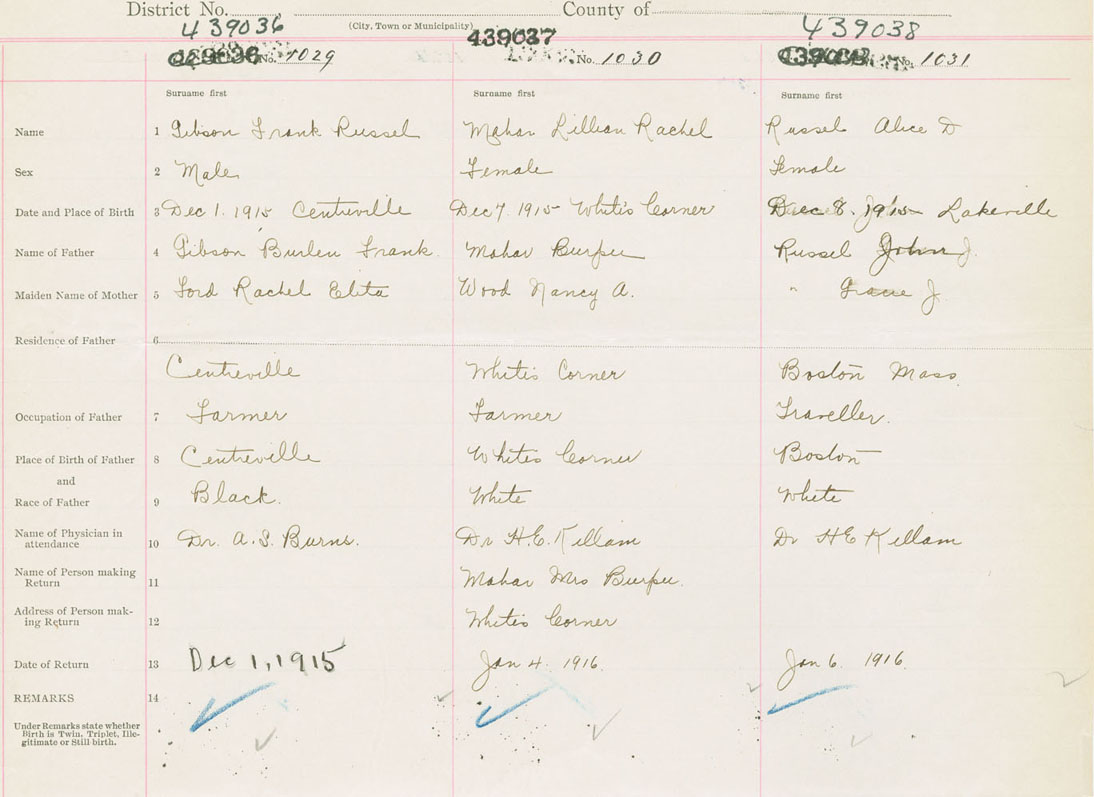 District No. County of
(City, Town or Municipality)
439036 439037 439038
No. 1029 No. 1030 No. 1031
Surname first Surname first Surname first
Name 1 Gibson Frank Russel Mahar Lillian Rachel Russel Alice D
Sex 2 Male Female Female
Date and Place of Birth 3 Dec 1. 1915 Centreville Dec 7. 1915 White's Corner Dec 8. 1915 Lakeville
Name of Father 4 Gibson Burlen Frank Mahar Burpee Russel John J.
Maiden Name of Mother 5 Ford Rachel Elita Wood Nancy A. " Grace J.
Residence of Father 6
Centreville Whites Corner Boston Mass.
Occupation of Father 7 Farmer Farmer Traveller.
Place of Birth of Father 8 Centreville Whites Corner Boston
and
Race of Father 9 Black. White White
Name of Physician in
attendance 10 Dr. A. S. Burns. Dr H. E. Killam Dr H E Killam
Name of Person making
Return 11 Mahar Mrs Burpee.
Address of Person mak-
ing Return 12 Whites Corner
Date of Return 13 Dec 1, 1915 Jan 4. 1916. Jan 6. 1916.
REMARKS 14
Under Remarks state whether
Birth is Twin, Triplet, Ille-
gitimate or Still birth.